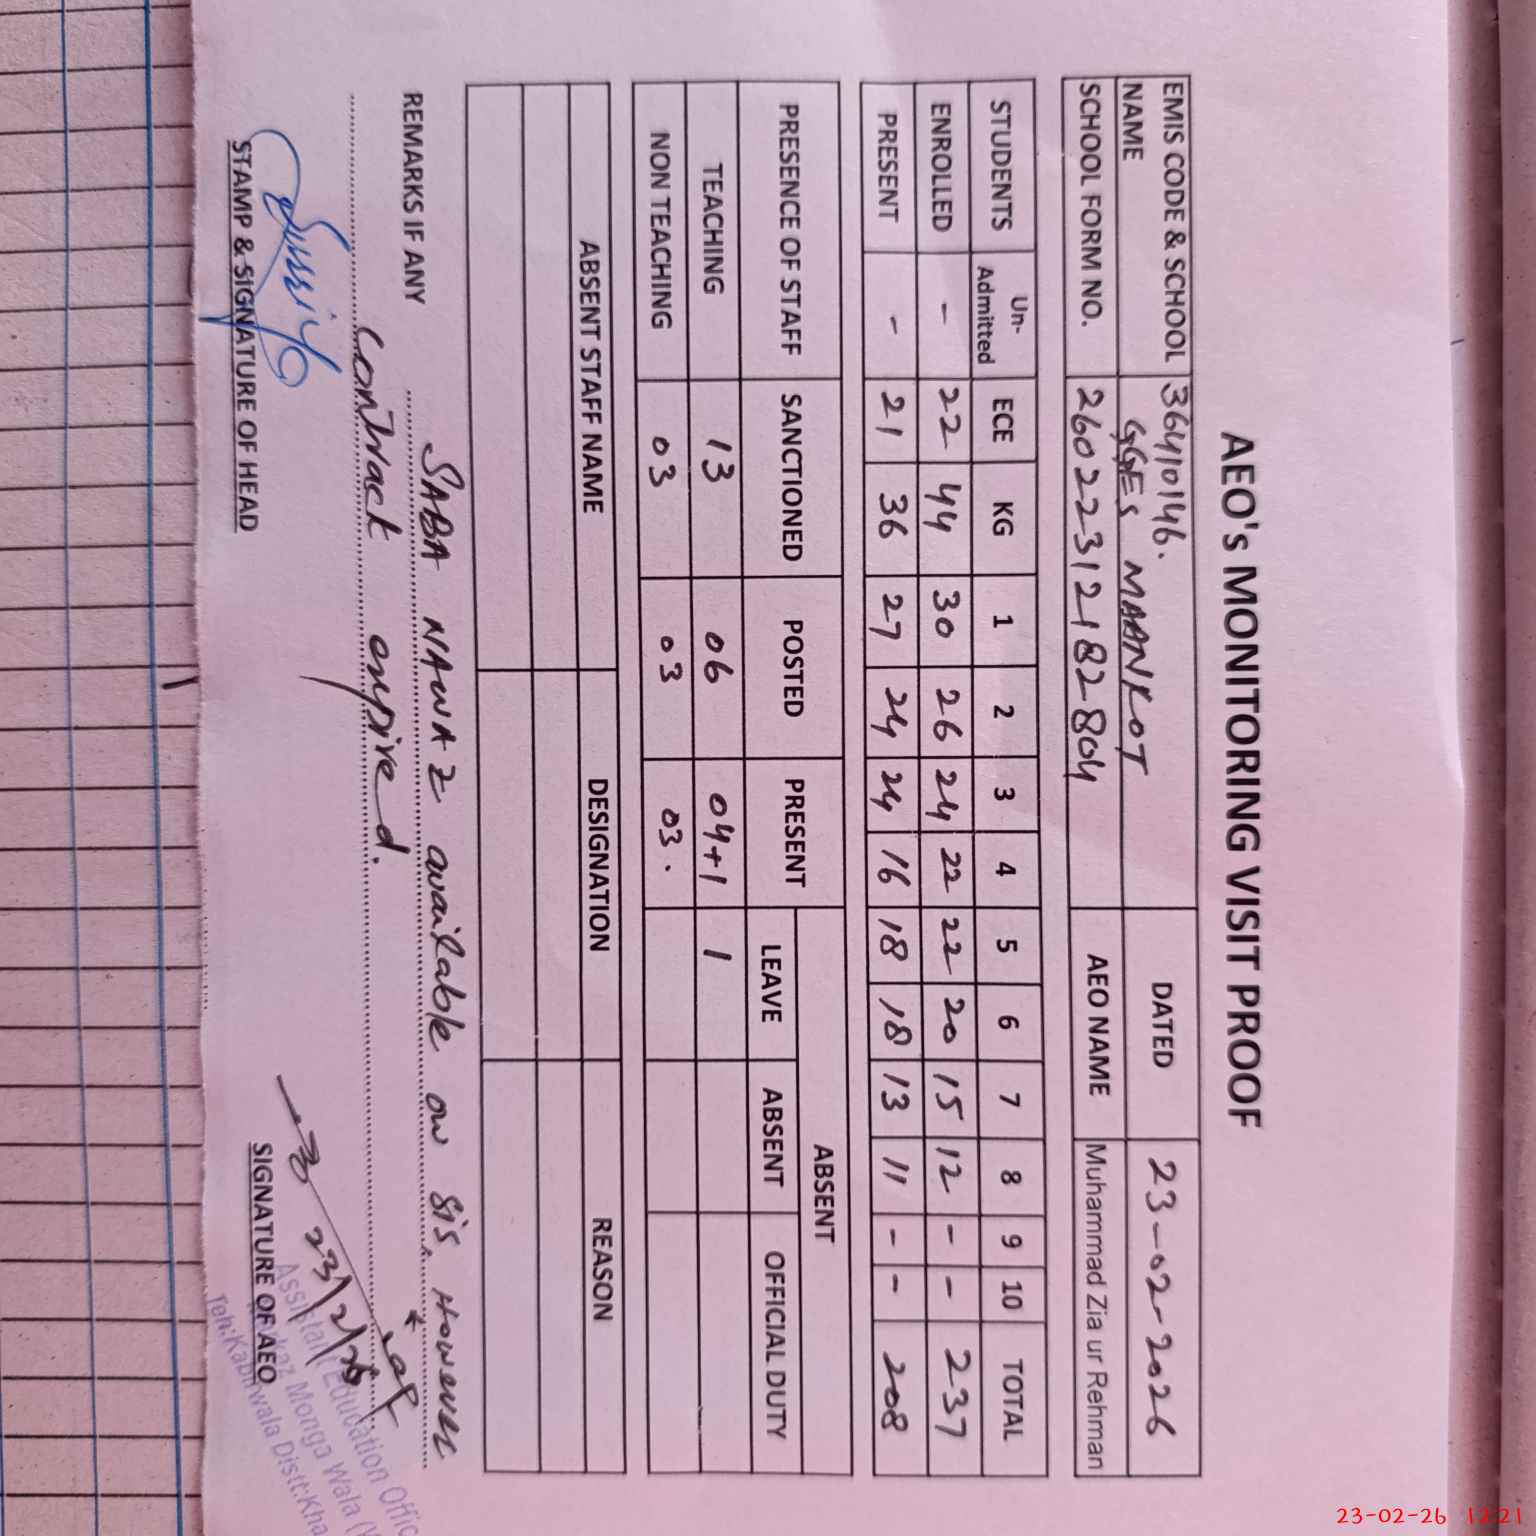 AEO's MONITORING VISIT PROOF
EMIS CODE & SCHOOL NAME 36410146. GGES MAANKOT DATED 23-02-2026
SCHOOL FORM NO. 26022312182804 AEO NAME Muhammad Zia ur Rehman
STUDENTS Un-Admitted ECE KG 1 2 3 4 5 6 7 8 9 10 TOTAL
ENROLLED - 22 44 30 26 24 22 22 20 15 12 - - 237
PRESENT - 21 36 27 24 24 16 18 18 13 11 - - 208
PRESENCE OF STAFF SANCTIONED POSTED PRESENT ABSENT
LEAVE ABSENT OFFICIAL DUTY
TEACHING 13 06 04+1 1
NON TEACHING 03 03 03.
ABSENT STAFF NAME DESIGNATION REASON
REMARKS IF ANY SABA NAWAZ available on SIS. However
Contract expired.
23/2/26
STAMP & SIGNATURE OF HEAD SIGNATURE OF AEO
Assistant Education Offic
Monga Wala
Teh:Kabirwala Distt:Kha
23-02-26 12:21